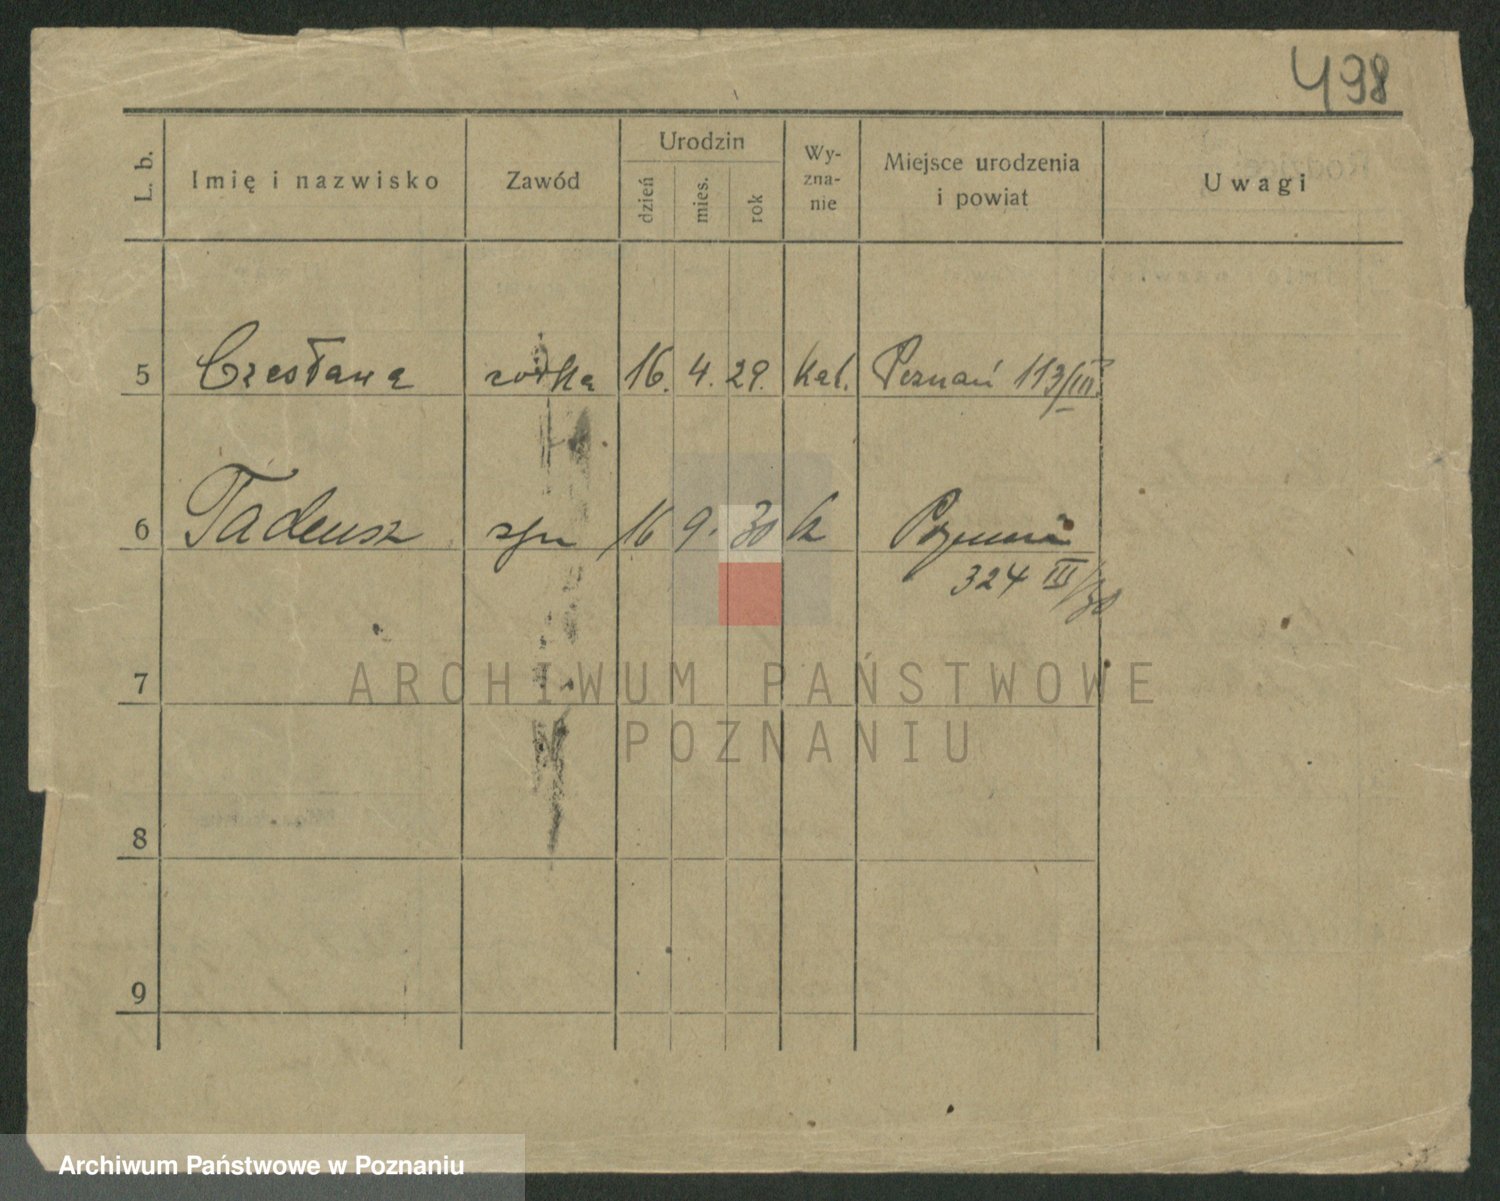 498
L. b. Imię i nazwisko Zawód Urodzin dzień mies. rok Wy-zna-nie Miejsce urodzenia i powiat Uwagi
5 Czesława córka 16. 4. 29. kat. Poznań 113/III
6 Tadeusz syn 16 9. 30 k Poznań
324 III/30
7
ARCHIWUM PAŃSTWOWE
W POZNANIU
8
9
Archiwum Państwowe w Poznaniu